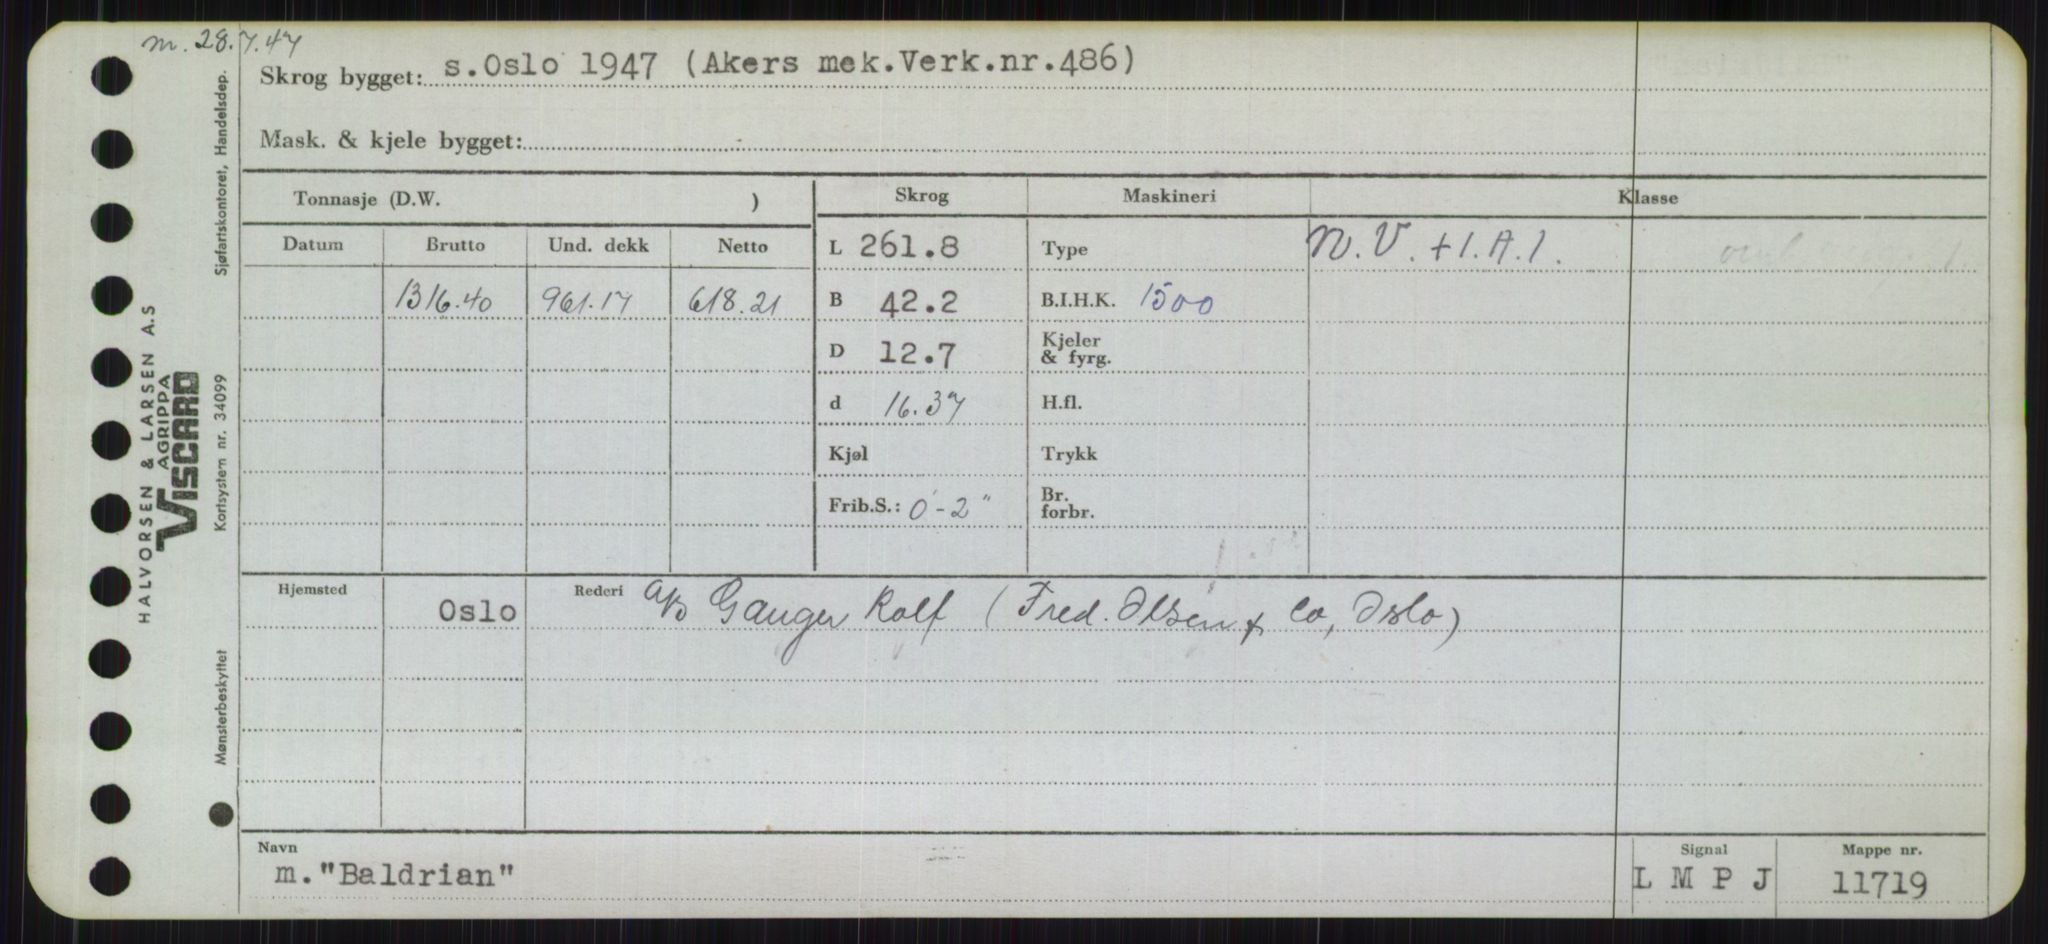 m. 28.7.47
Skrog bygget: s.Oslo 1947 (Akers mek.Verk.nr.486)
Mask. & kjele bygget:
Tonnasje (D.W. ) Skrog Maskineri Klasse
Datum Brutto Und. dekk Netto L 261.8 Type N.V. +1.A.1.
1316.40 961.17 618.21 B 42.2 B.I.H.K. 1500
D 12.7 Kjeler
& fyrg.
d 16.37 H.fl.
Kjøl Trykk
Frib.S.: 0'-2" Br.
forbr.
Hjemsted Oslo Rederi A/S Ganger Rolf (Fred. Olsen & Co, Oslo)
Navn Signal Mappe nr.
m."Baldrian" L M P J 11719
HALVORSEN & LARSEN A.S
AGRIPPA
VISCARD
Mønsterbeskyttet Kortsystem nr. 34099 Sjøfartskontoret, Handelsdep.